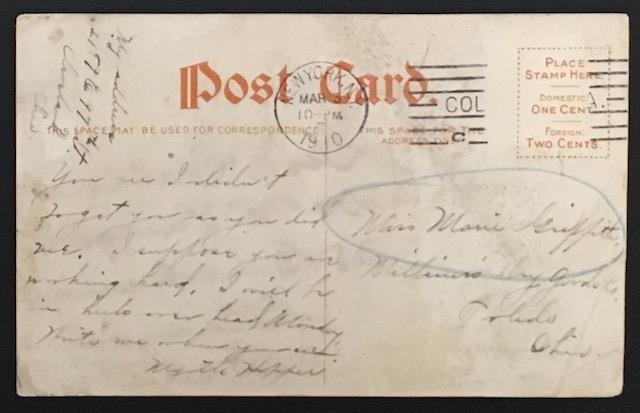 My address
2176 77 St
Cleveland
Ohio
Post Card.
NEW YORK, N.Y.
MAR 3
10-PM
1910
COL
C
PLACE
STAMP HERE
DOMESTIC:
ONE CENT
FOREIGN:
TWO CENTS.
THIS SPACE MAY BE USED FOR CORRESPONDENCE
THIS SPACE FOR THE
ADDRESS ONLY
You see I didn't
forget you as you did
me. I suppose you are
working hard. I will be
in heels over head Monday
Write me when you can
Myrtle Hopper
Miss Marie Griffith
Dry Goods Co.
Toledo
Ohio